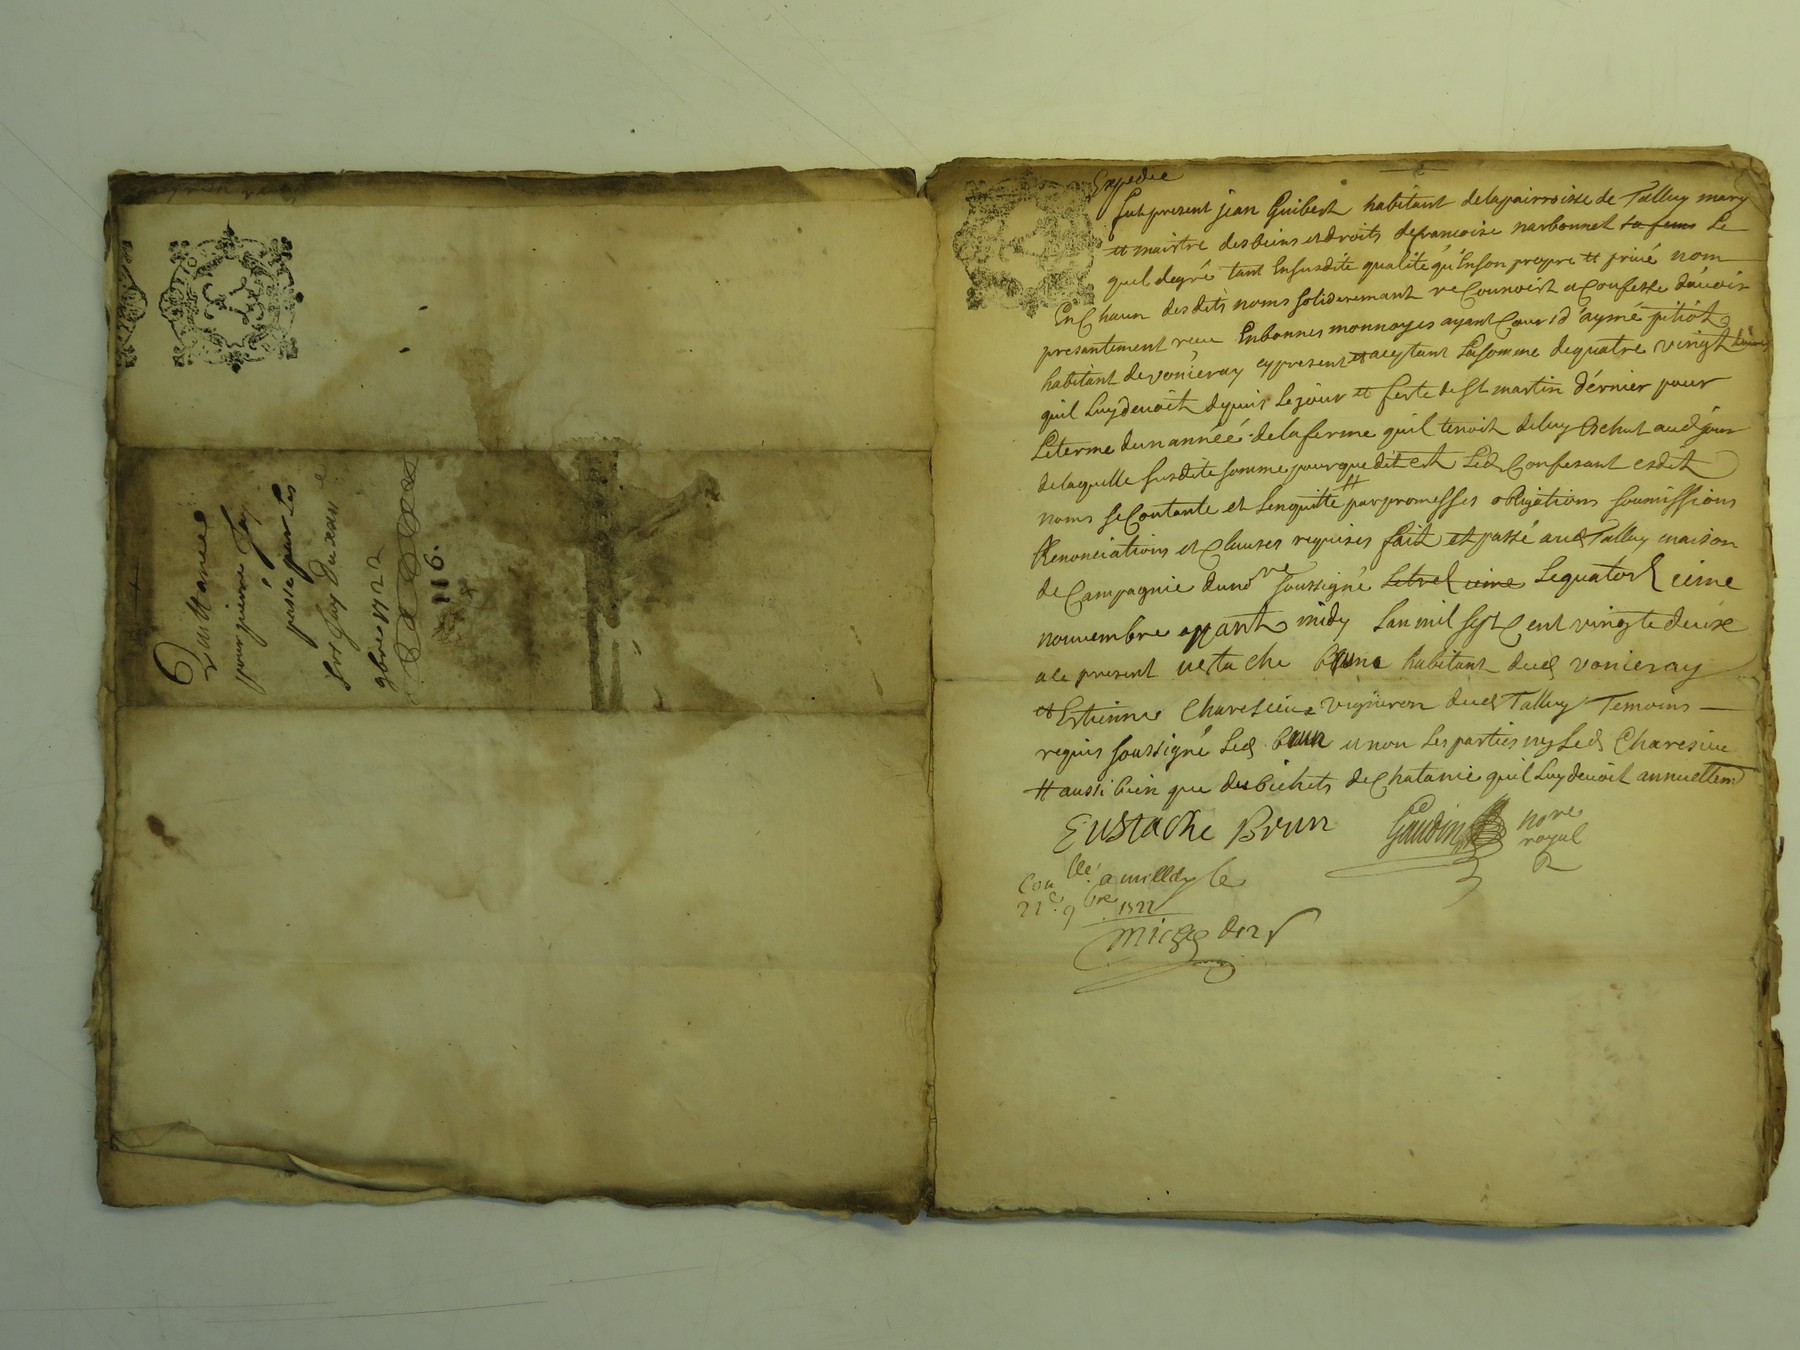 Quittance
pour pierre Jay
passé par Les
frs Guy Duxau
9bre 1722
116.
Expedie
fut present jean Guibert habitant delapairroisse de Talluy mary
et maistre desbiens et droits defrancoise narbonnet sa fame Le
quel degré tant Ensusdite qualité qu'Enson propre et privé nom
En Chacun desdits noms soliderement reConnoist a Confesse d'avoir
presantement receu Enbonnes monnoyes ayant Cour d'aymé pitiot
habitant devonieray cypresent et aceptant Lasomme dequatre vingt livres
quil Luydevoit depuis Lejour et feste de St martin dérnier pour
Leterme dunannéé delaferme quil tenoit deluy Echut aud jour
delaquelle susdite somme pourquedit est Led Confesant esdit
noms seContante et Lenquitte # parpromesses obligations soumissions
Renonciations et Clauses requises fait et passé aud Talluy maison
deCampagnie dunore soussigné Letreiziéme Lequatorziéme
nouvembre appant midy Lan mil sept Cent vingte deux
ale present uestache brune habitant dud vonieray
et Estienne Charesieue vigneron dud Talluy Temoins
requis soussigné Led brun et non Lesparties nyLed Charesieu
# aussi bien que desbichets deChatanie quil Luydevoit annuellemt
Eustache Brun
Gaudin nore
royal
Conllé a millery le
22e 9bre 1722